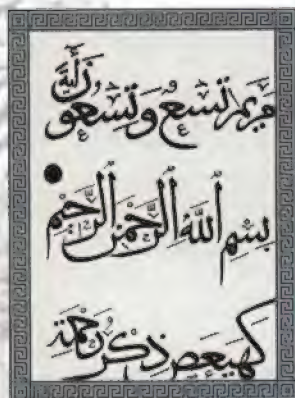 مريم تسع وتسعون آية
بسم الله الرحمن الرحيم
كهيعص ذكر رحمة